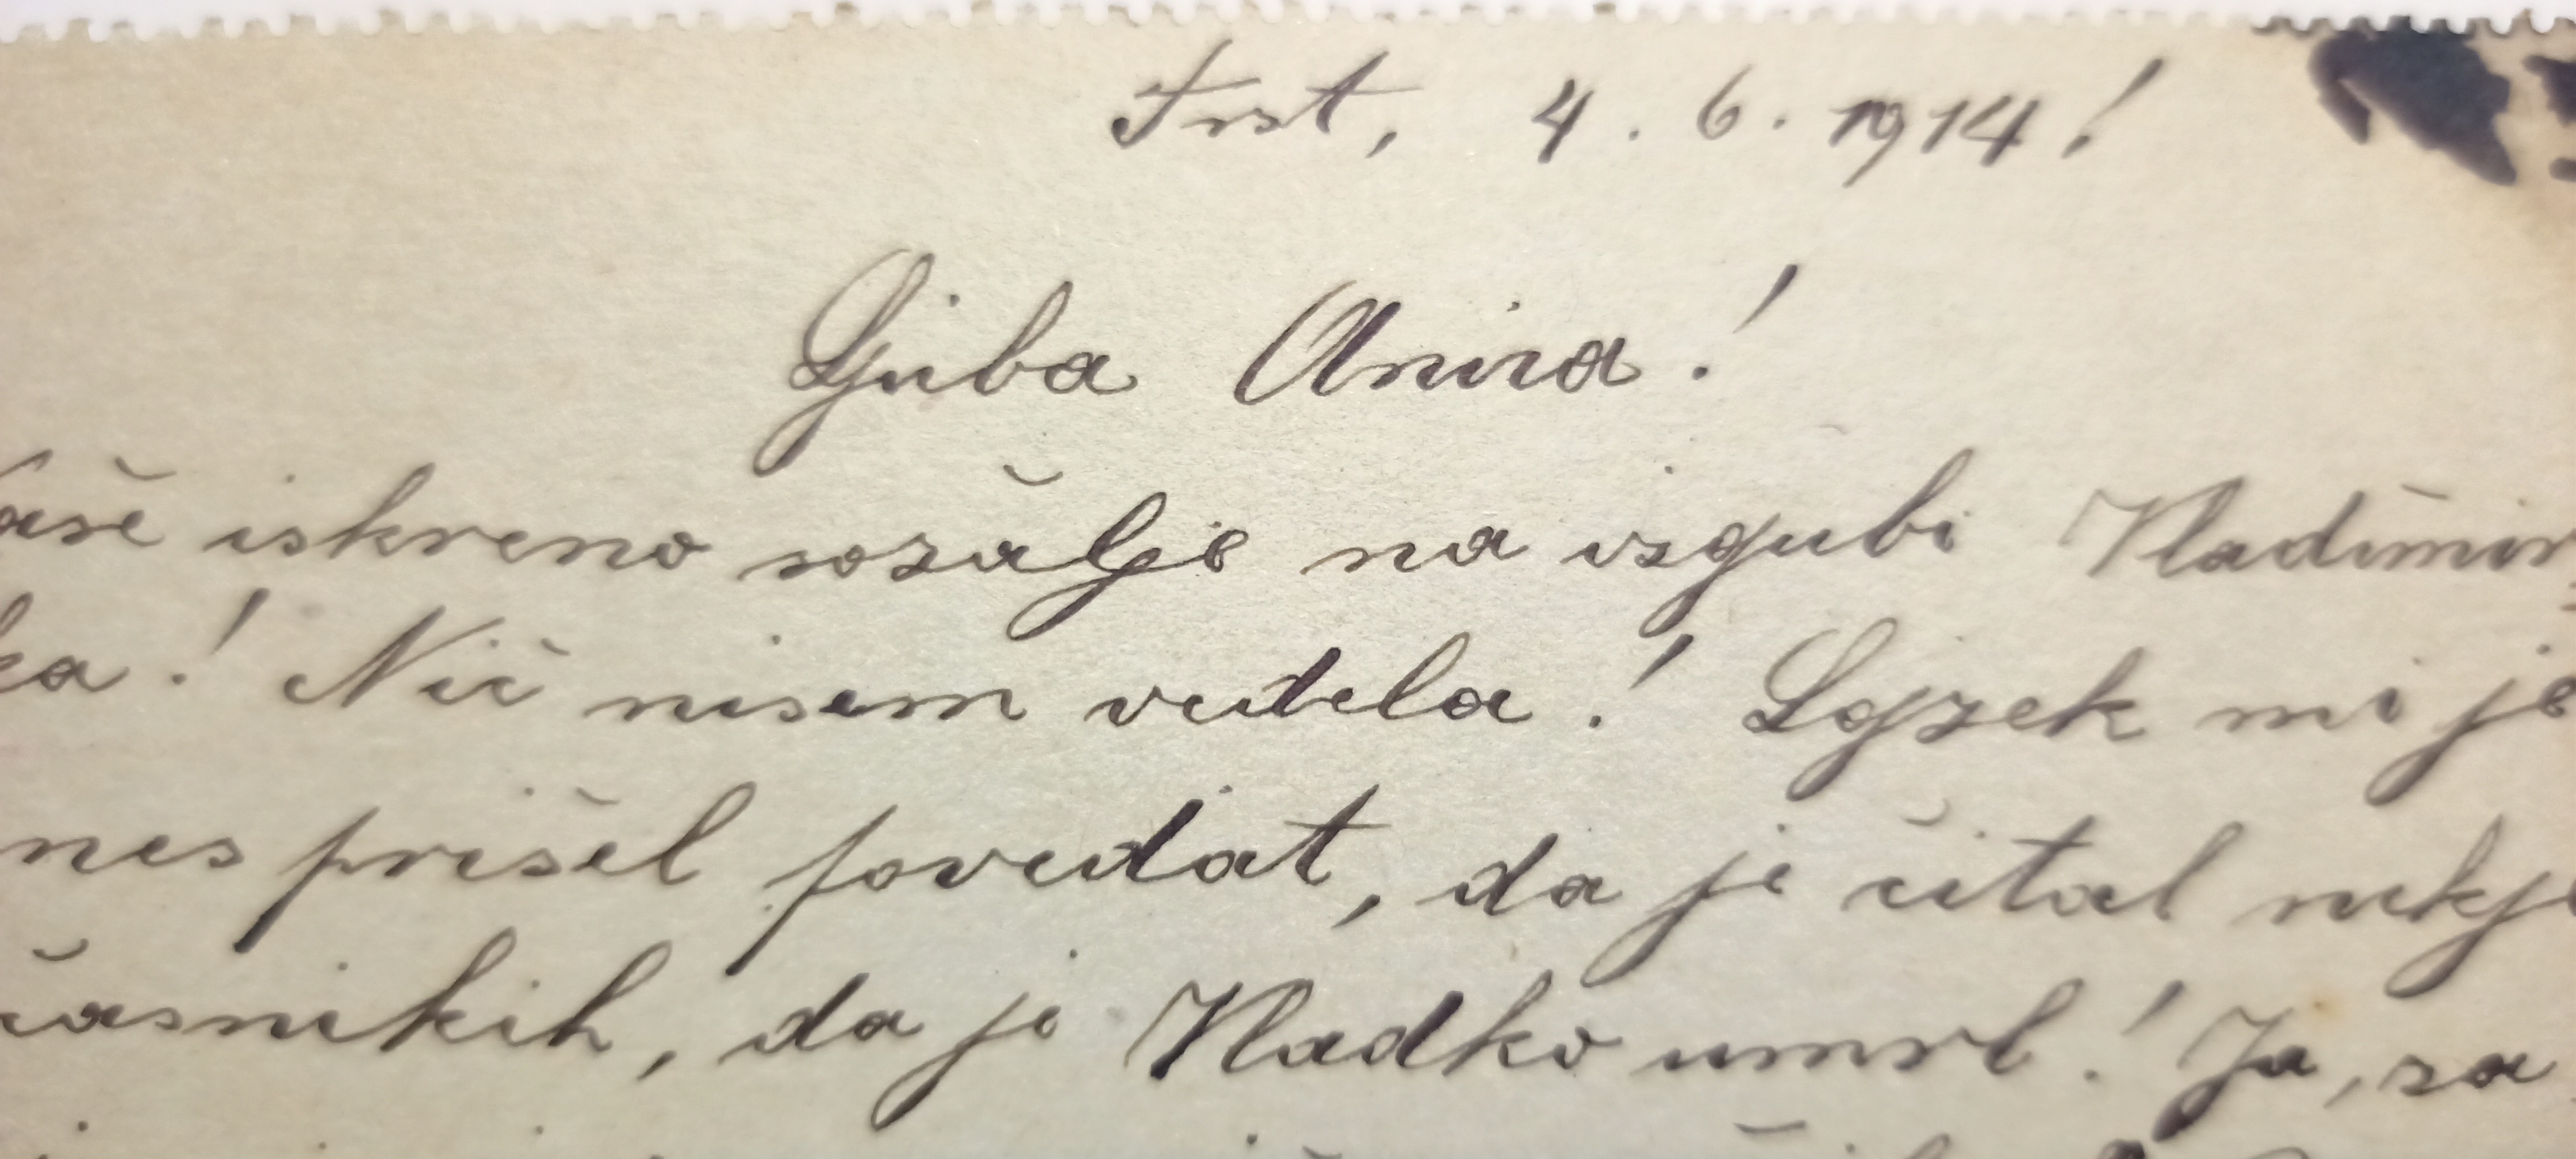 Trst, 4. 6. 1914!
Ljuba Anica!
Vaše iskreno sožalje na izgubi Vladimir
ka! Nič nisem vedela! Lojzek mi je
nes prišel povedat, da je čital nekje
časnikih, da je Vladko umrl! Ja, za